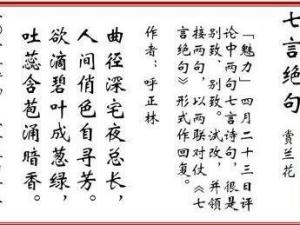 七言绝句
赏兰花
「魅力」四月二十三日评
论中两句七言诗句，很是
别致、别致。试改，并领
接两句，以两联对仗《七
言绝句》形式作回复。
作者：呼正林
曲径深宅夜总长，
人间俏色自寻芳。
欲滴碧叶成葱绿，
吐蕊含苞涌暗香。